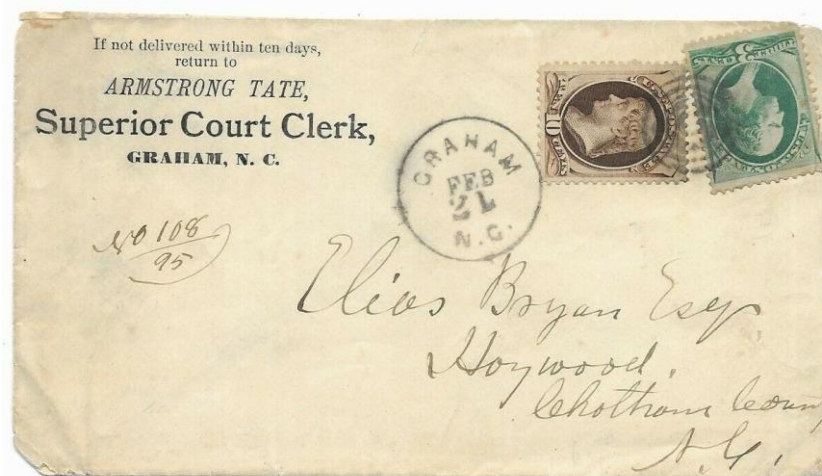 If not delivered within ten days,
return to
ARMSTRONG TATE,
Superior Court Clerk,
GRAHAM, N. C.
GRAHAM
FEB
21
N.C.
No 108
95
Elias Bryan Esqr
Haywood.
Chatham Coun
N.C.